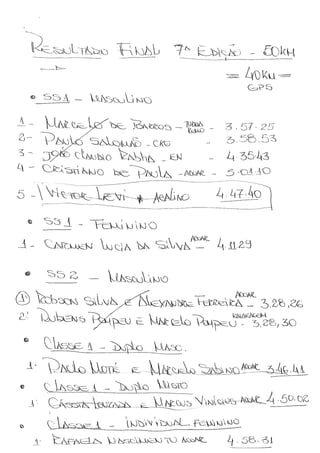 RESULTADO FINAL 7ª EDIÇÃO - 50KM
= 40KM =
GPS
• SS1 - MASCULINO
1 - MARCELO DE BARROS - - 3.57.25
2 - PAULO SALOMÃO - - 3.58.53
3 - JOÃO CLAUDIO - EN - 4.35.43
4 - CRISTIANO DE PAULA - AQUAE - 5.01.10
5 - VICTOR LEVI 4.47.40
• SS1 - FEMININO
1 - CARMEN LUCIA DA SILVA - 4.11.29
• SS2 - MASCULINO
1) ROBSON SILVA E ALEXANDRE FERREIRA - 3,28,26
2' RUBENS POMPEU E MARCELO POMPEU - 3,28,30
• CLASSE 1 - DUPLO MASC.
1. PAULO MOTÉ E MARCELO SABINO 3.46.41
• CLASSE 1 - DUPLO MISTO
1. CÁSSIA E MARCUS VINICIUS 4.50.02
• CLASSE 1 - INDIVIDUAL FEMININO
1. RAFAELA NASCIMENTO 4.58.31